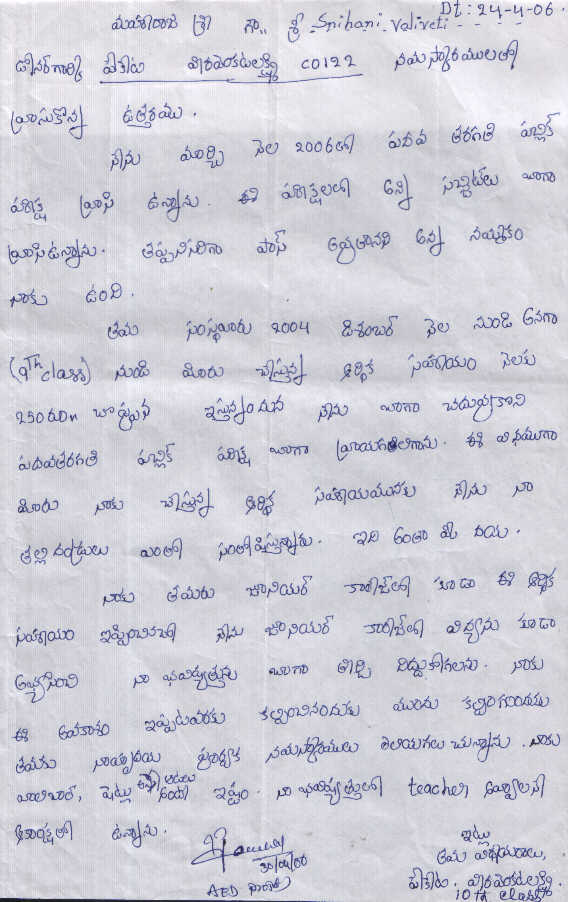 Dt: 24-4-06.
మహారాజ శ్రీ గౌ.. శ్రీ Snihani Valiveti
డోనర్ గార్కి పేకేటి వీరవెంకటలక్ష్మి C0122 నమస్కారములతో
వ్రాసుకొన్న ఉత్తరము.
నేను మార్చి నెల 2006లో పదవ తరగతి పబ్లిక్
పరీక్ష వ్రాసి ఉన్నాను. ఈ పరీక్షలలో అన్ని సబ్జెక్టులు బాగా
వ్రాసిఉన్నాను. తప్పనిసరిగా పాస్ అవ్వతానని అన్న నమ్మకం
నాకు ఉంది.
తమ సంస్థవారు 2004 డిశంబర్ నెల నుండి అనగా
(9th class) నుండి మీరు చేస్తున్న ఆర్థిక సహాయం నెలకు
250రూ౹౹ చొప్పున ఇస్తున్నందున నేను బాగా చదువుకొని
పదవతరగతి పబ్లిక్ పరీక్ష బాగా వ్రాయగలిగాను. ఈ విధముగా
మీరు నాకు చేస్తున్న ఆర్థిక సహాయమునకు నేను నా
తల్లి దండ్రులు ఎంతో సంతోషిస్తున్నారు. ఇది అంతా మీ దయ.
నాకు తమరు జూనియర్ కాలేజీలో కూడా ఈ ఆర్థిక
సహాయం ఇప్పించినచో నేను జూనియర్ కాలేజీలో విద్యను కూడా
అభ్యసించి నా భవిష్యత్తును బాగా తీర్చి దిద్దుకోగలను. నాకు
ఈ అవకాశం ఇప్పటివరకు కల్పించినందుకు ముందు కల్పించగలందుకు
తమకు నాహృదయ పూర్వక నమస్కారములు తెలియగలు చున్నాను. నాకు
వాలీబాల్, షటిల్ ఆటలు ఇష్టం. నా భవిష్యత్తులో teacher అవ్వాలని
ఆకాంక్షతో ఉన్నాను.
ఇట్లు
30/04/06
తమ విధేయురాలు,
AED
పేకేటి. వీరవెంకటలక్ష్మి.
10th class